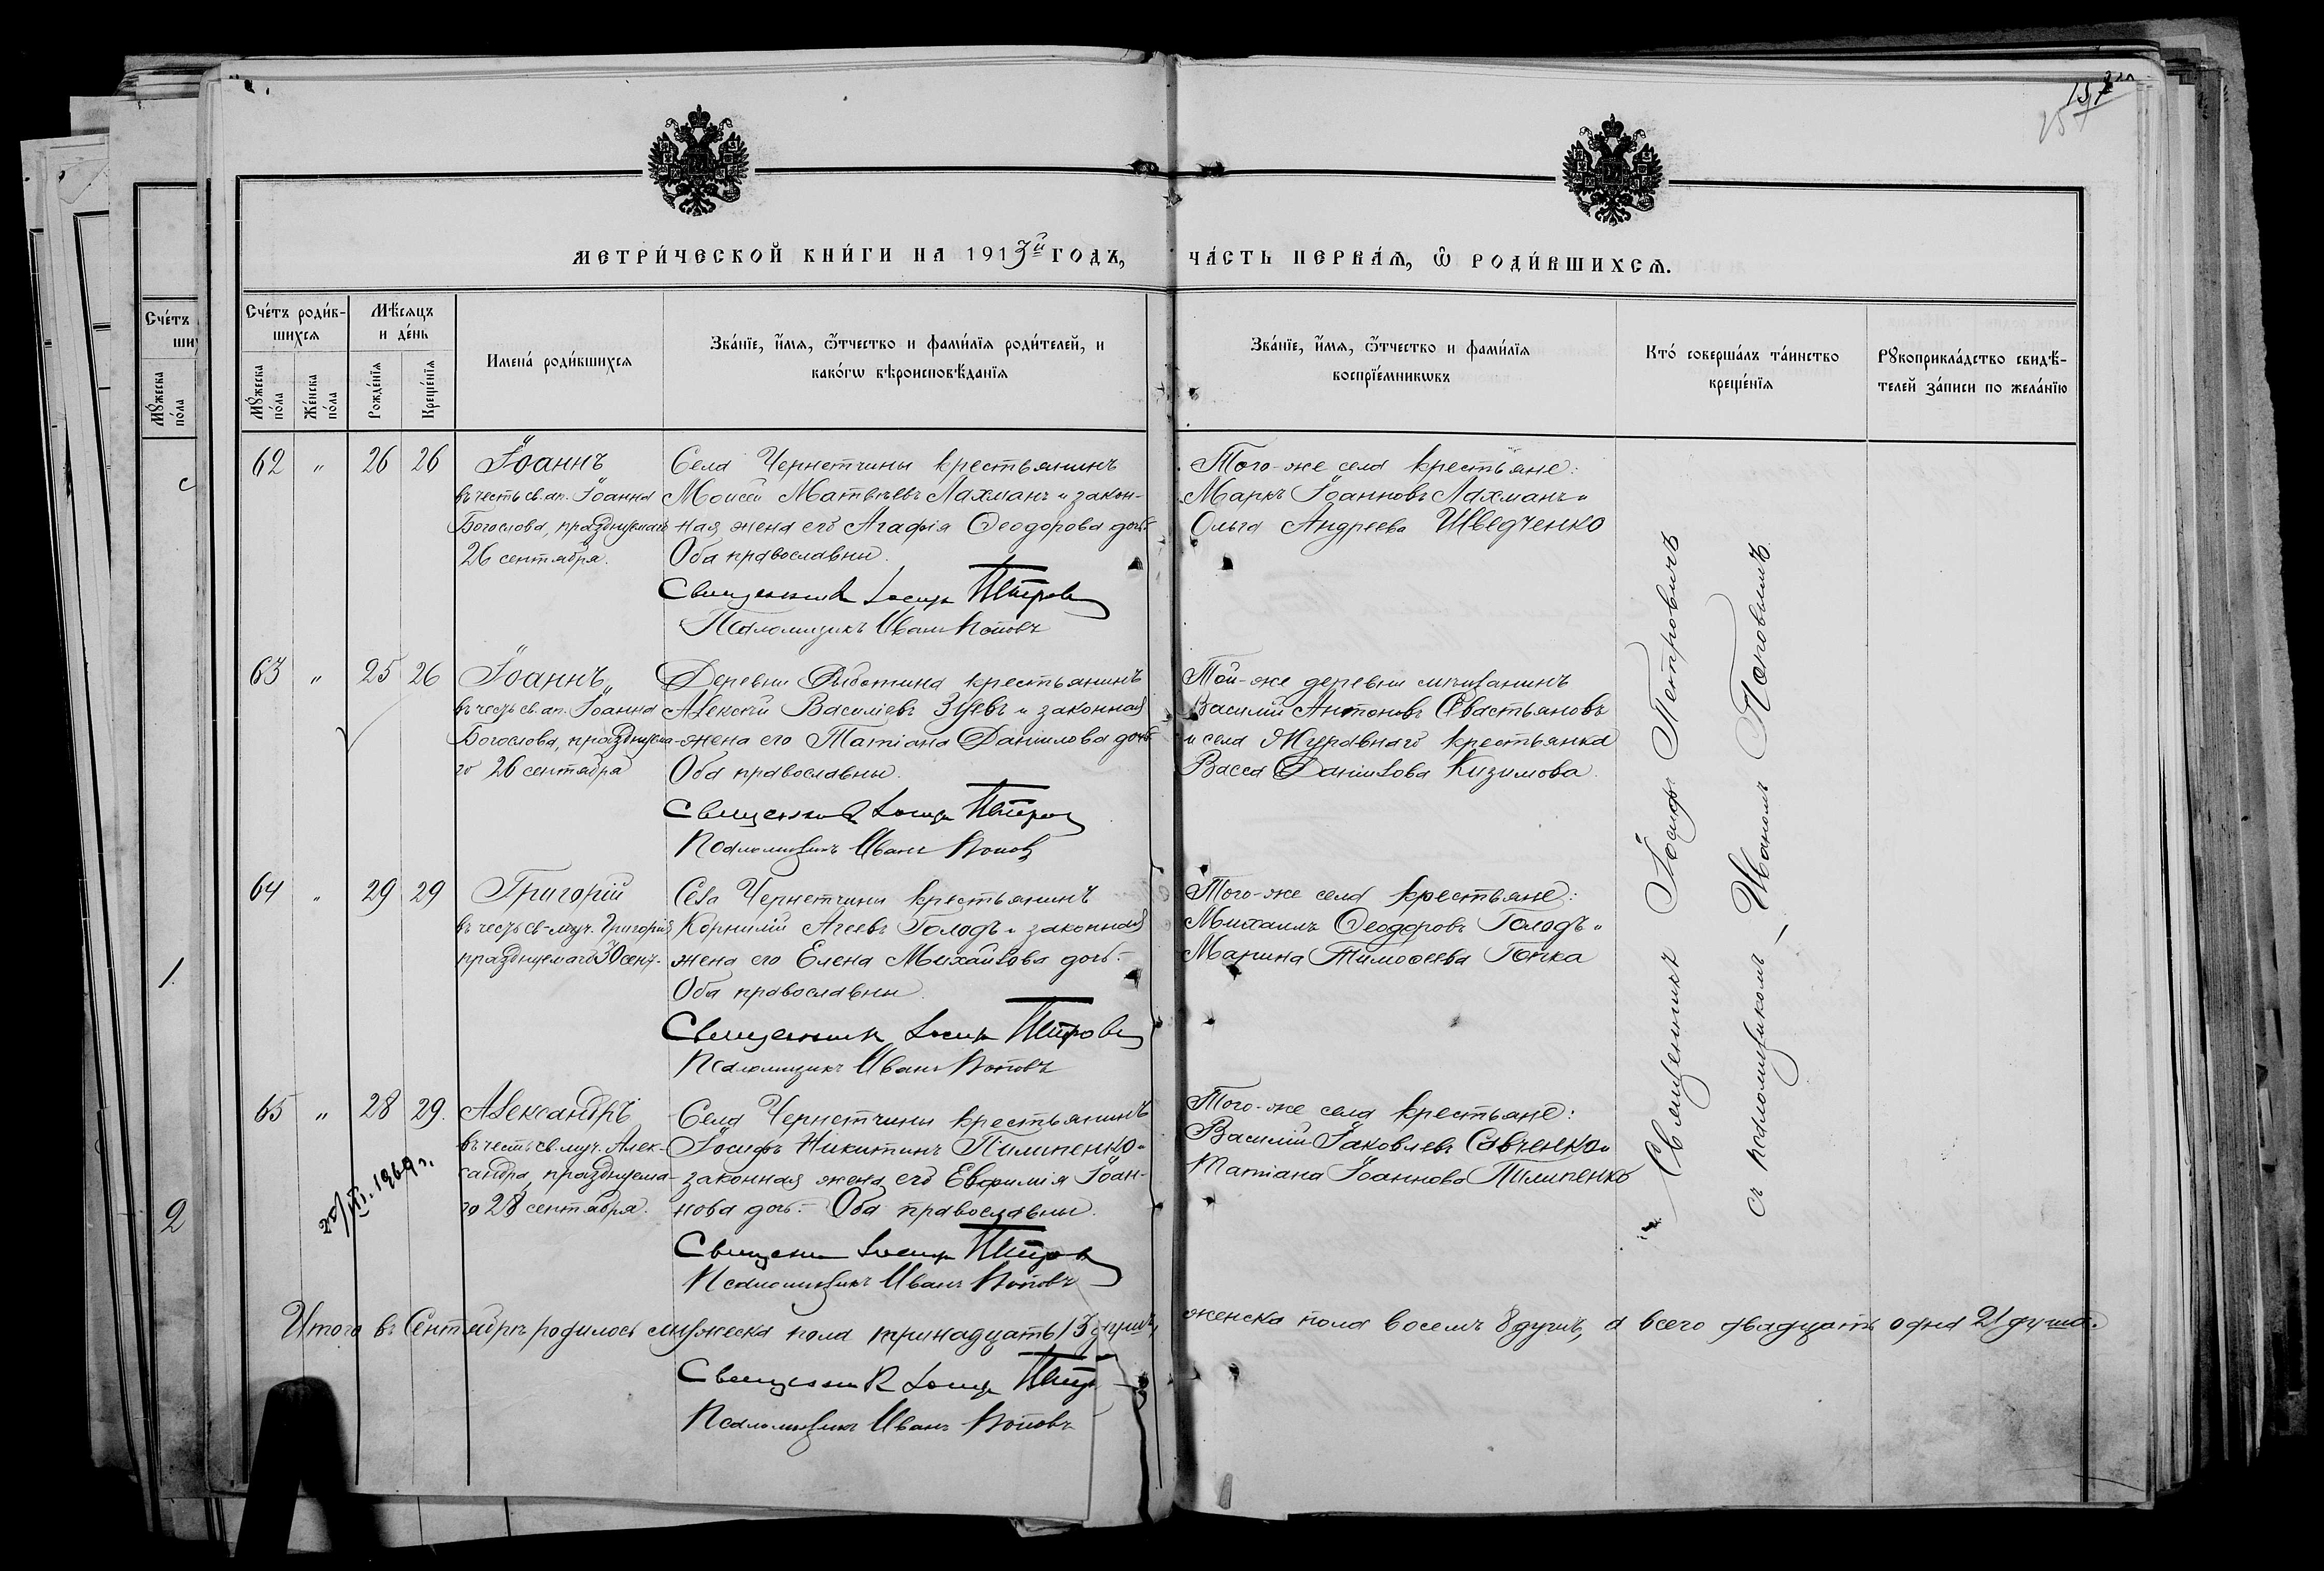 157
МЕТРИ́ЧЕСКОЙ КНИ́ГИ НА 1913й ГОДЪ,
ЧА́СТЬ ПЕРВАЯ, Ѡ РОДИ́ВШИХСѦ.
Сче́тъ роди́в-
шихсѧ
Мѣсѧцъ
и де́нь
Имена́ роди́вшихсѧ
Зва́нїе, и҆́мѧ, ѻ҆́тчество и фами́лїѧ роди́телей, и
како́гѡ вѣроисповѣ́данїѧ
Зва́нїе, и҆́мѧ, ѻ҆́тчество и фами́лїѧ
воспрїе́мникѡвъ
Кто́ соверша́лъ та́инство
креще́нїѧ
Рꙋкоприкла́дство свидѣ́-
телей за́писи по жела́нїю
Мꙋ́жеска по́ла
Же́нска по́ла
Рожде́нїѧ
Креще́нїѧ
62 " 26 26 Іоаннъ
въ честь св. ап. Іоанна
Богослова, празднуемаго
26 сентября.
Села Чернетчины крестьянинъ
Моисей Матвѣевъ Лахманъ и закон-
ная жена его Агафія Ѳеодорова дочь.
Оба православны.
Священникъ Іосифъ Петровъ
Псаломщикъ Иванъ Поповъ
Того-же села крестьяне:
Маркъ Іоанновъ Лахманъ и
Ольга Андреева Шведченко
63 " 25 26 Іоаннъ
въ честь св. ап. Іоанна
Богослова, празднуема-
го 26 сентября
Деревни крестьянинъ
Алексѣй Василіевъ Зуевъ и законная
жена его Татіана Даніилова дочь.
Оба православны.
Священникъ Іосифъ Петров
Псаломщикъ Иванъ Поповъ
Той-же деревни мѣщанинъ
Василій Антоновъ Севастьяновъ
и села Журавнаго крестьянка
Васса Даніилова Кизимова.
64 " 29 29 Григорій
въ честь св-муч. Григорія,
празднуемаго 30 сент.
Села Чернетчины крестьянинъ
Корнилій Агеевъ Голодъ и законная
жена его Елена Михаилова дочь.-
Оба православны.
Священникъ Іосифъ Петровъ
Псаломщикъ Иванъ Поповъ
Того-же села крестьяне:
Михаилъ Ѳеодоровъ Голодъ и
Марина Тимоѳеева Гопка
65 " 28 29. Александръ
въ честь св. муч. Алек-
сандра, празднуема-
го 28 сентября.
Села Чернетчины крестьянинъ
Іосифъ Никитинъ Пилипенко и
законная жена его Евфимія Іоан-
нова дочь.- Оба православны.
Священникъ Іосифъ Петровъ
Псаломщикъ Иванъ Поповъ
Того-же села крестьяне:
Василій Іаковлевъ Савченко и
Татіана Іоаннова Пилипенко
1969 г.
Священникъ Іосифъ Петровичъ
съ псаломщикомъ Иваномъ Поповымъ.
Итого въ Сентябрѣ родилось мужеска пола тринадцать 13 душъ,
женска пола восемъ 8 душъ, а всего двадцать одна 21 душа.
Священникъ Іосифъ Петр
Псаломщикъ Иванъ Поповъ
Сче́тъ
Мꙋ́жеска по́ла
1.
2